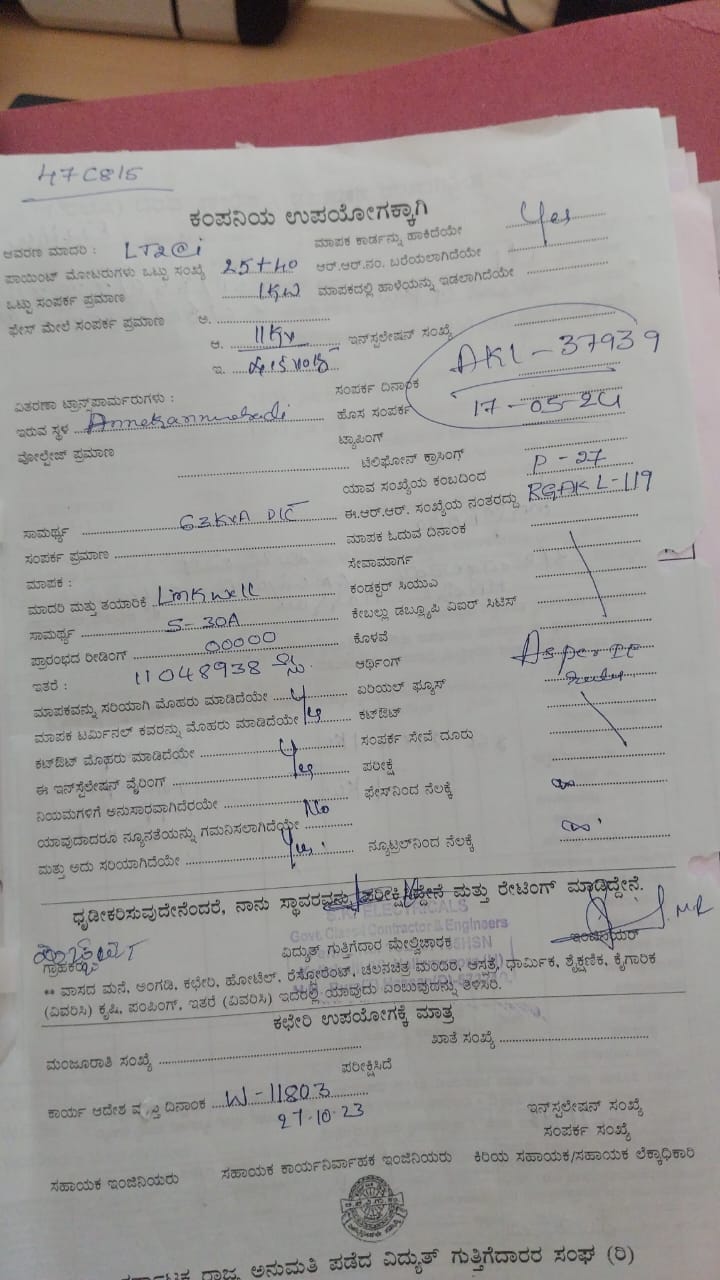 47C815
ಕಂಪನಿಯ ಉಪಯೋಗಕ್ಕಾಗಿ
ಆವರಣ ಮಾದರಿ : LT2@i ಮಾಪಕ ಕಾರ್ಡನ್ನು ಹಾಕಿದೆಯೇ Yes
ಪಾಯಿಂಟ್ ಮೋಟರುಗಳು ಒಟ್ಟು ಸಂಖ್ಯೆ 25+40 ಆರ್.ಆರ್.ನಂ. ಬರೆಯಲಾಗಿದೆಯೇ
ಒಟ್ಟು ಸಂಪರ್ಕ ಪ್ರಮಾಣ 1KW ಮಾಪಕದಲ್ಲಿ ಹಾಳೆಯನ್ನು ಇಡಲಾಗಿದೆಯೇ
ಫೇಸ್ ಮೇಲೆ ಸಂಪರ್ಕ ಪ್ರಮಾಣ ಅ.
ಆ. 11KV ಇನ್‌ಸ್ಟಲೇಷನ್ ಸಂಖ್ಯೆ AKL-37939
ಇ.
ವಿತರಣಾ ಟ್ರಾನ್ಸ್‌ಫಾರ್ಮರುಗಳು : ಸಂಪರ್ಕ ದಿನಾಂಕ 17-05-24
ಇರುವ ಸ್ಥಳ ಹೊಸ ಸಂಪರ್ಕ
ವೋಲ್ಟೇಜ್ ಪ್ರಮಾಣ ಟ್ಯಾಪಿಂಗ್
ಟೆಲಿಫೋನ್ ಕ್ರಾಸಿಂಗ್
ಯಾವ ಸಂಖ್ಯೆಯ ಕಂಬದಿಂದ P-27
ಸಾಮರ್ಥ್ಯ 63KVA ಈ.ಆರ್.ಆರ್. ಸಂಖ್ಯೆಯ ನಂತರದ್ದು RGAKL-119
ಸಂಪರ್ಕ ಪ್ರಮಾಣ ಮಾಪಕ ಓದುವ ದಿನಾಂಕ
ಮಾಪಕ : ಸೇವಾಮಾರ್ಗ
ಮಾದರಿ ಮತ್ತು ತಯಾರಿಕೆ Linkwell ಕಂಡಕ್ಟರ್ ಸಿಯುವಿ
ಸಾಮರ್ಥ್ಯ 5-30A ಕೇಬಲ್ಲು ಡಬ್ಲ್ಯೂಪಿ ವಿಐರ್ ಸಿಟಿಸ್
ಪ್ರಾರಂಭದ ರೀಡಿಂಗ್ 00000 ಕೊಳವೆ
ಇತರೆ : 11048938 ಆರ್ಥಿಂಗ್ As per
ಮಾಪಕವನ್ನು ಸರಿಯಾಗಿ ಮೊಹರು ಮಾಡಿದೆಯೇ ಏರಿಯಲ್ ಫ್ಯೂಸ್
ಮಾಪಕ ಟರ್ಮಿನಲ್ ಕವರನ್ನು ಮೊಹರು ಮಾಡಿದೆಯೇ ಕಟ್‌ಔಟ್
ಕಟ್‌ಔಟ್ ಮೊಹರು ಮಾಡಿದೆಯೇ ಸಂಪರ್ಕ ಸೇವೆ ದೂರು
ಈ ಇನ್‌ಸ್ಟಲೇಷನ್ ವೈರಿಂಗ್ Yes ಪರೀಕ್ಷೆ
ನಿಯಮಗಳಿಗೆ ಅನುಸಾರವಾಗಿದೆರಯೇ ಫೇಸ್‌ನಿಂದ ನೆಲಕ್ಕೆ ∞
ಯಾವುದಾದರೂ ನ್ಯೂನತೆಯನ್ನು ಗಮನಿಸಲಾಗಿದೆಯೇ No
ಮತ್ತು ಅದು ಸರಿಯಾಗಿದೆಯೇ Yes. ನ್ಯೂಟ್ರಲ್‌ನಿಂದ ನೆಲಕ್ಕೆ ∞
ಧೃಡೀಕರಿಸುವುದೇನೆಂದರೆ, ನಾನು ಸ್ಥಾವರವನ್ನು ಪರೀಕ್ಷಿಸಿದ್ದೇನೆ ಮತ್ತು ರೇಟಿಂಗ್ ಮಾಡಿದ್ದೇನೆ.
ELECTRICALS
Govt. Class I Contractor & Engineers
ಗ್ರಾಹಕರು ವಿದ್ಯುತ್ ಗುತ್ತಿಗೆದಾರ ಮೇಲ್ವಿಚಾರಕ ಇಂಜಿನಿಯರ್
** ವಾಸದ ಮನೆ, ಅಂಗಡಿ, ಕಛೇರಿ, ಹೋಟೆಲ್, ರೆಸ್ಟೋರೆಂಟ್, ಚಲನಚಿತ್ರ ಮಂದಿರ, ಆಸ್ಪತ್ರೆ, ಧಾರ್ಮಿಕ, ಶೈಕ್ಷಣಿಕ, ಕೈಗಾರಿಕ
(ವಿವರಿಸಿ) ಕೃಷಿ, ಪಂಪಿಂಗ್, ಇತರೆ (ವಿವರಿಸಿ) ಇದರಲ್ಲಿ ಯಾವುದು ಎಂಬುವುದನ್ನು ತಿಳಿಸಿರಿ.
ಕಛೇರಿ ಉಪಯೋಗಕ್ಕೆ ಮಾತ್ರ
ಮಂಜೂರಾತಿ ಸಂಖ್ಯೆ ಖಾತೆ ಸಂಖ್ಯೆ
ಪರೀಕ್ಷಿಸಿದೆ
ಕಾರ್ಯ ಆದೇಶ ದಿನಾಂಕ W-11803
27.10.23
ಇನ್‌ಸ್ಟಲೇಷನ್ ಸಂಖ್ಯೆ
ಸಂಪರ್ಕ ಸಂಖ್ಯೆ
ಸಹಾಯಕ ಇಂಜಿನಿಯರು ಸಹಾಯಕ ಕಾರ್ಯನಿರ್ವಾಹಕ ಇಂಜಿನಿಯರು ಕಿರಿಯ ಸಹಾಯಕ/ಸಹಾಯಕ ಲೆಕ್ಕಾಧಿಕಾರಿ
ರಾಜ್ಯ ಅನುಮತಿ ಪಡೆದ ವಿದ್ಯುತ್ ಗುತ್ತಿಗೆದಾರರ ಸಂಘ (ರಿ)